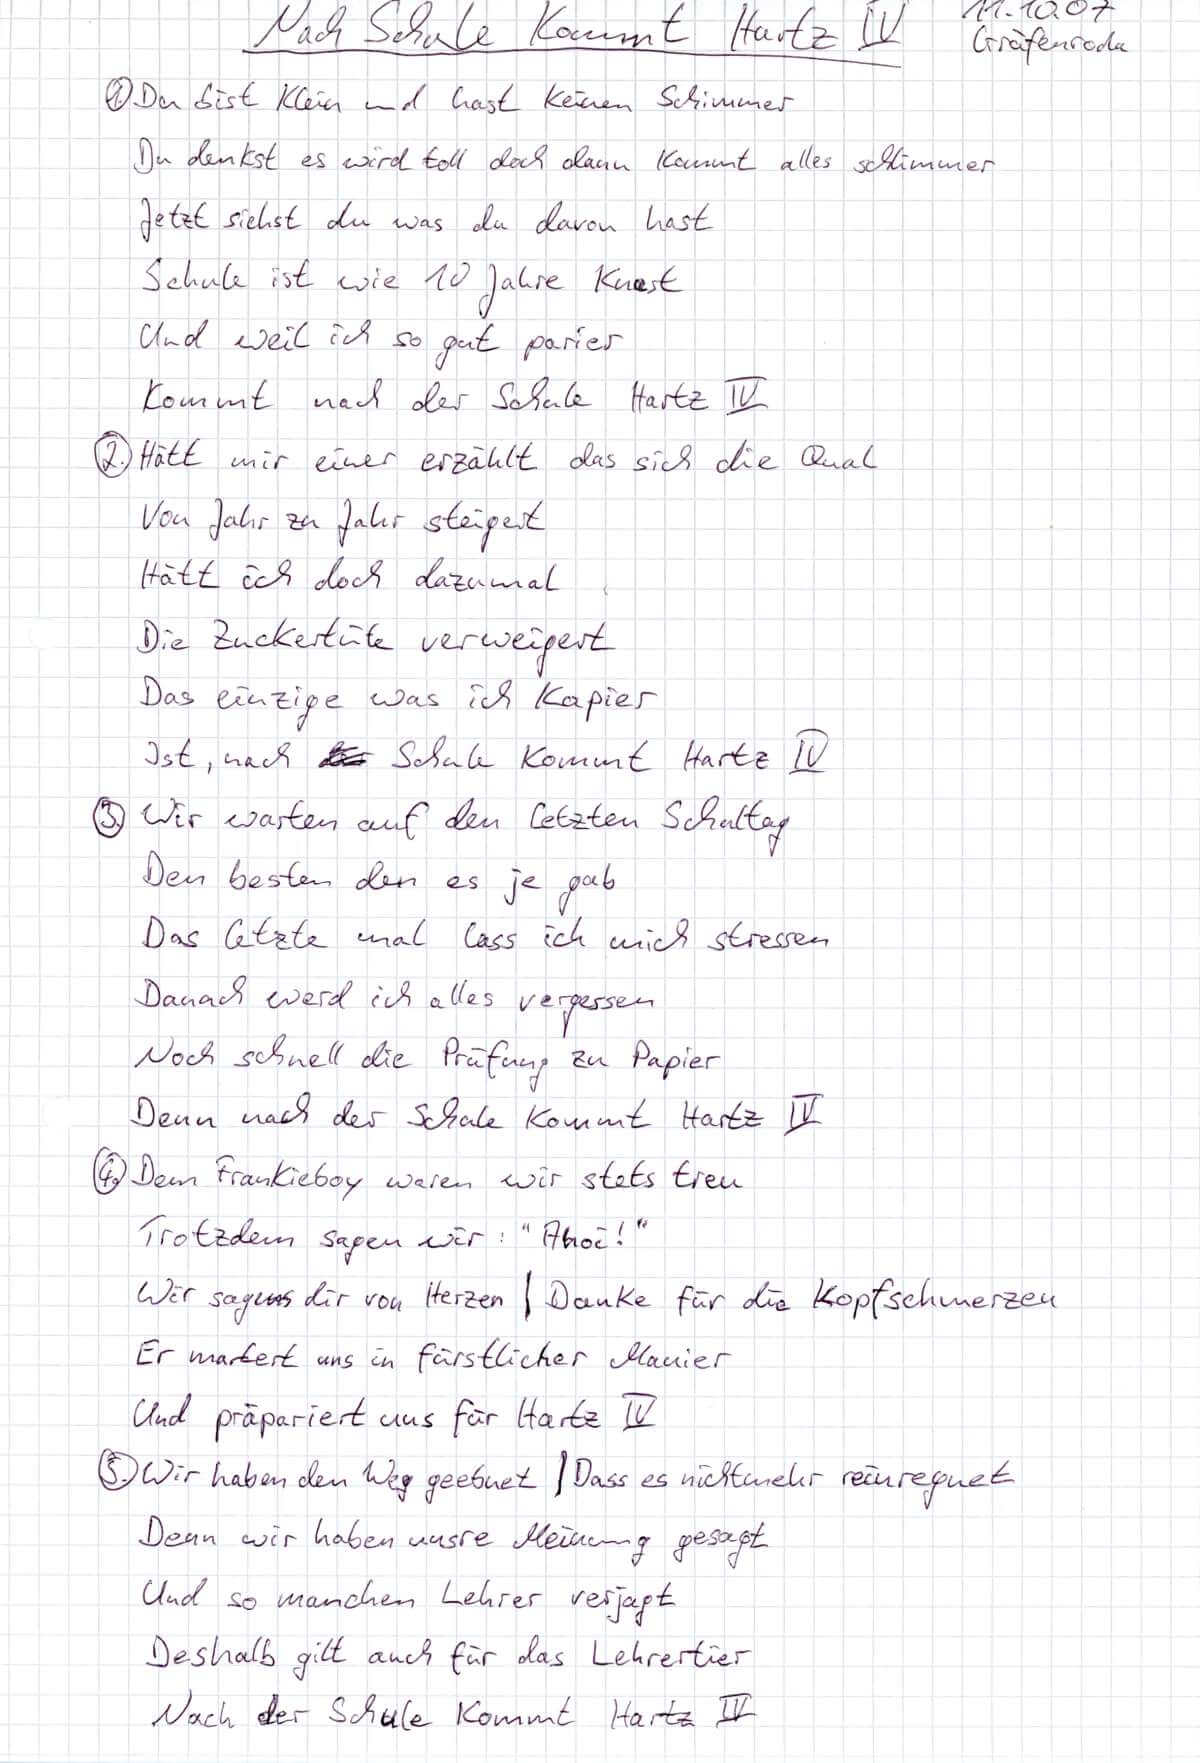 Nach Schule Kommt Hartz IV
11.10.07
Gräfenroda
① Du bist Klein und hast Keinen Schimmer
Du denkst es wird toll doch dann Kommt alles schlimmer
Jetzt siehst du was du davon hast
Schule ist wie 10 Jahre Knast
Und weil ich so gut parier
Kommt nach der Schule Hartz IV
②. Hätt mir einer erzählt das sich die Qual
Von Jahr zu Jahr steigert
Hätt ich doch dazumal
Die Zuckertüte verweigert
Das einzige was ich Kapier
Ist, nach Schule Kommt Hartz IV
③. Wir warten auf den letzten Schultag
Den besten den es je gab
Das letzte mal lass ich mich stressen
Danach werd ich alles vergessen
Noch schnell die Prüfung zu Papier
Denn nach der Schule Kommt Hartz IV
④. Dem Frankieboy waren wir stets treu
Trotzdem sagen wir: "Ahoi!"
Wir sagens dir von Herzen | Danke für die Kopfschmerzen
Er martert uns in fürstlicher Manier
Und präpariert uns für Hartz IV
⑤. Wir haben den Weg geebnet | Dass es nichtmehr reinregnet
Denn wir haben unsre Meinung gesagt
Und so manchen Lehrer verjagt
Deshalb gilt auch für das Lehrertier
Nach der Schule Kommt Hartz IV